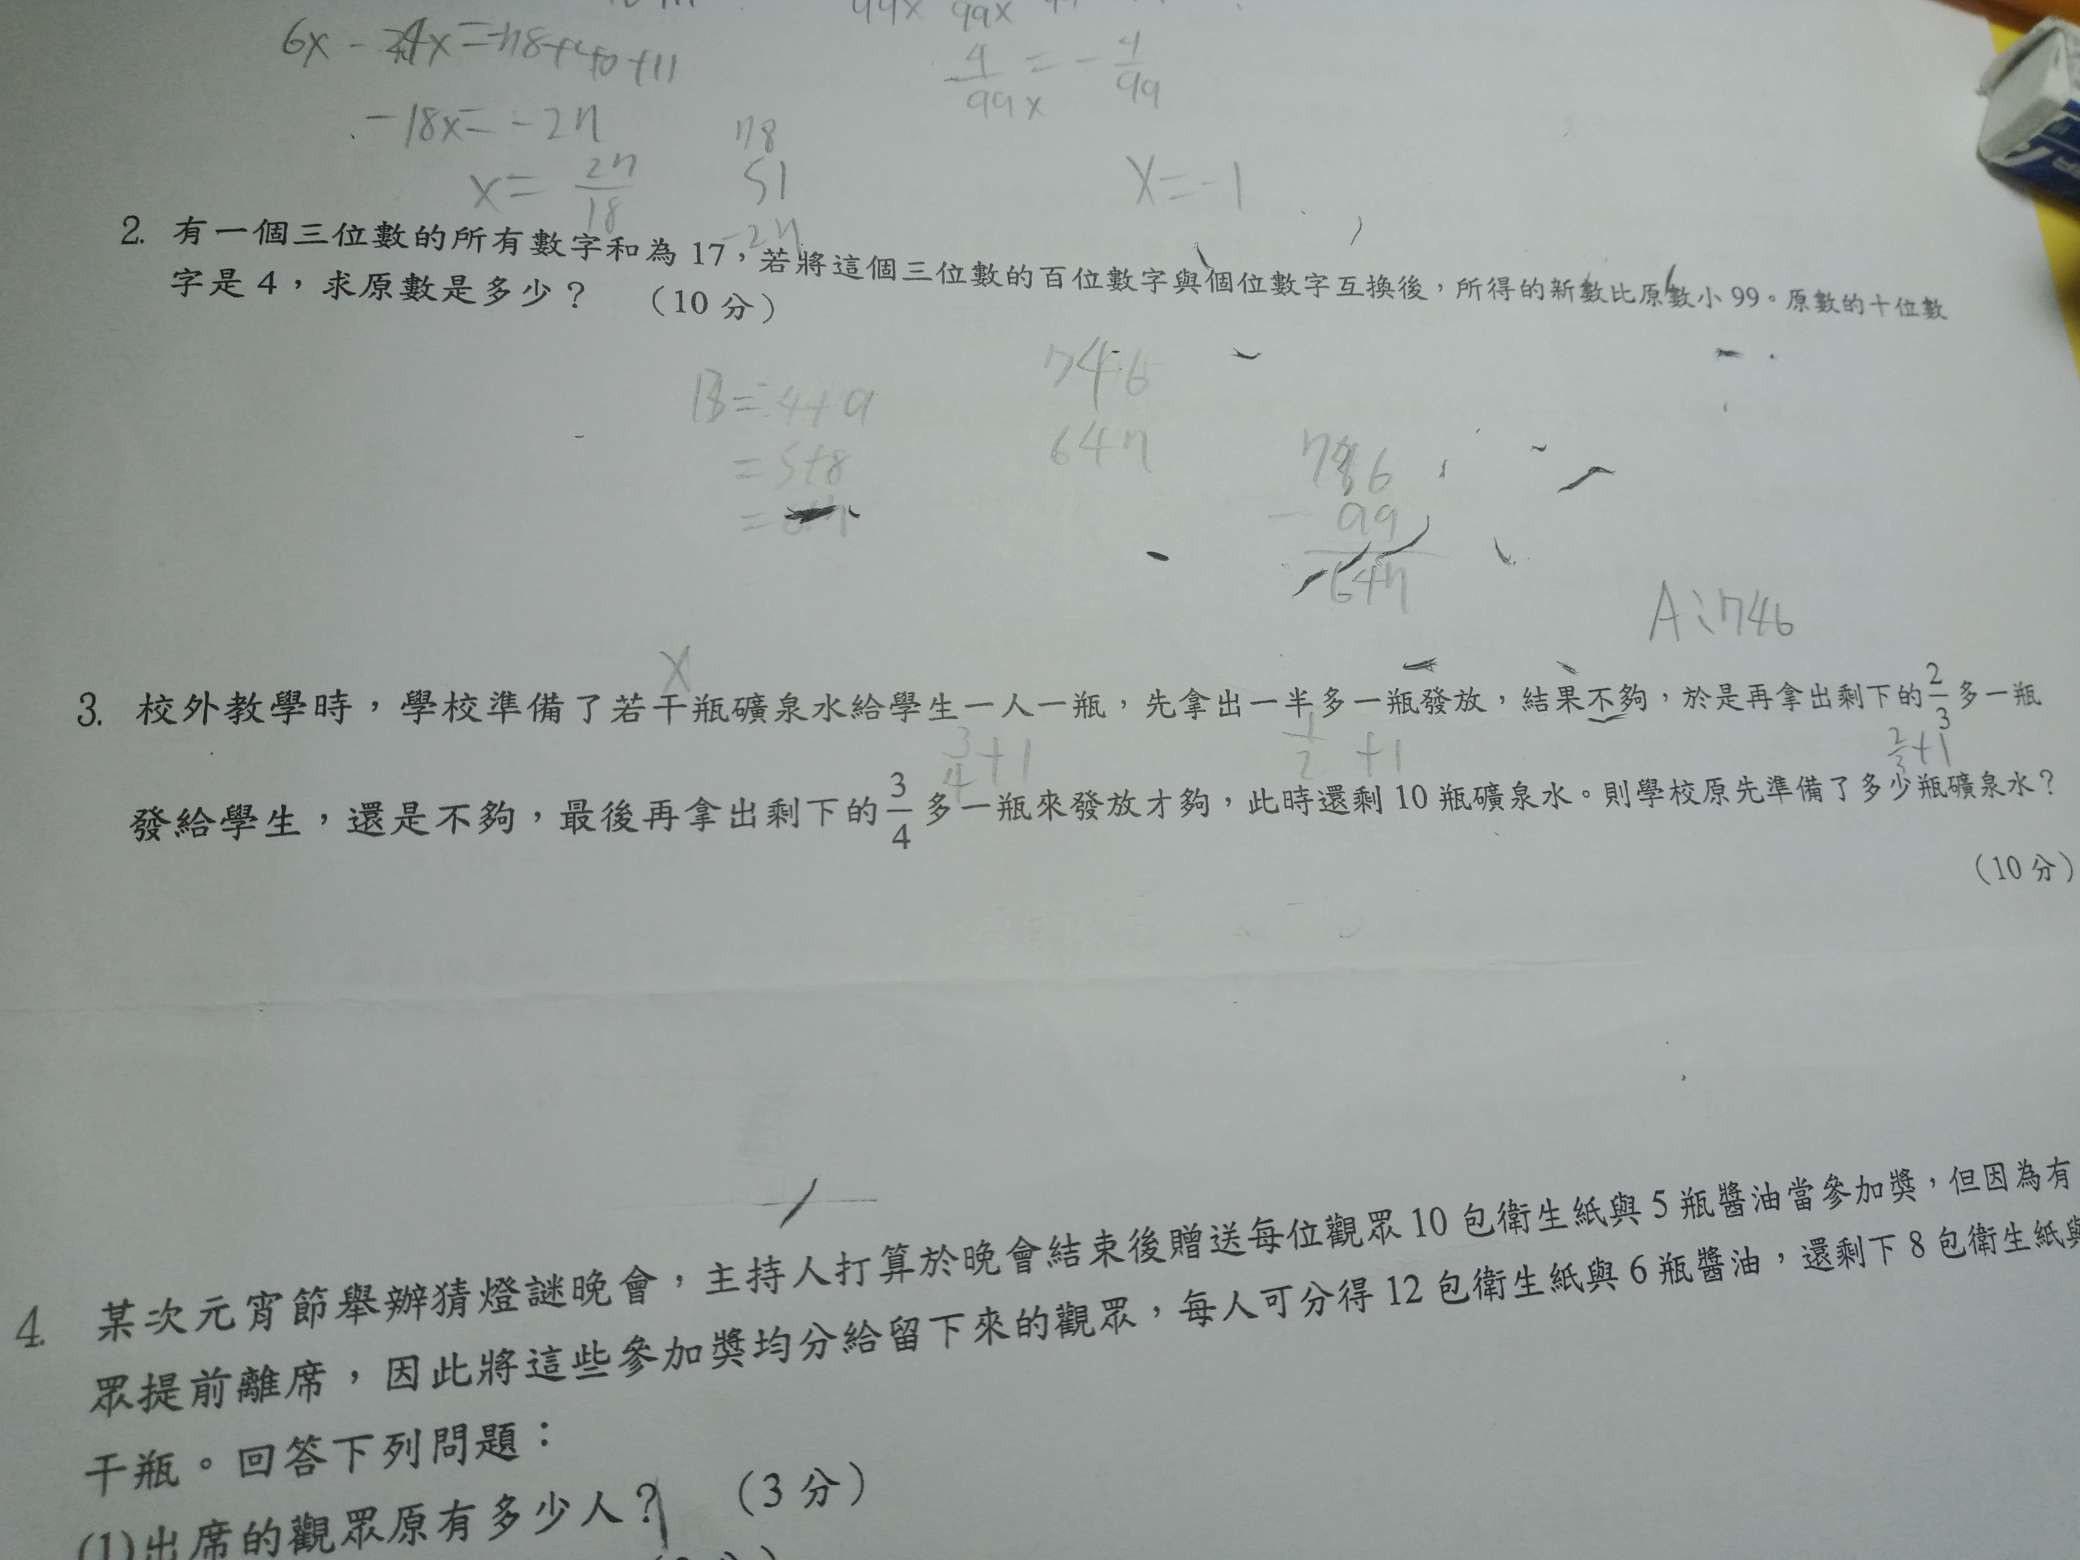 6x - 24x = -78+40+11
-18x = -27
x = 27/18
78
51
-27
4/99x = - 4/99
x = -1
2. 有一個三位數的所有數字和為 17，若將這個三位數的百位數字與個位數字互換後，所得的新數比原數小 99。原數的十位數
字是 4，求原數是多少？ （10 分）
13 = 4+9
= 5+8
746
647
746
- 99
647
A:746
x
3. 校外教學時，學校準備了若干瓶礦泉水給學生一人一瓶，先拿出一半多一瓶發放，結果不夠，於是再拿出剩下的 2/3 多一瓶
3/4 +1 1/2 +1 2/3 +1
發給學生，還是不夠，最後再拿出剩下的 3/4 多一瓶來發放才夠，此時還剩 10 瓶礦泉水。則學校原先準備了多少瓶礦泉水？
（10 分）
4. 某次元宵節舉辦猜燈謎晚會，主持人打算於晚會結束後贈送每位觀眾 10 包衛生紙與 5 瓶醬油當參加獎，但因為有
眾提前離席，因此將這些參加獎均分給留下來的觀眾，每人可分得 12 包衛生紙與 6 瓶醬油，還剩下 8 包衛生紙與
干瓶。回答下列問題：
(1)出席的觀眾原有多少人？ （3 分）